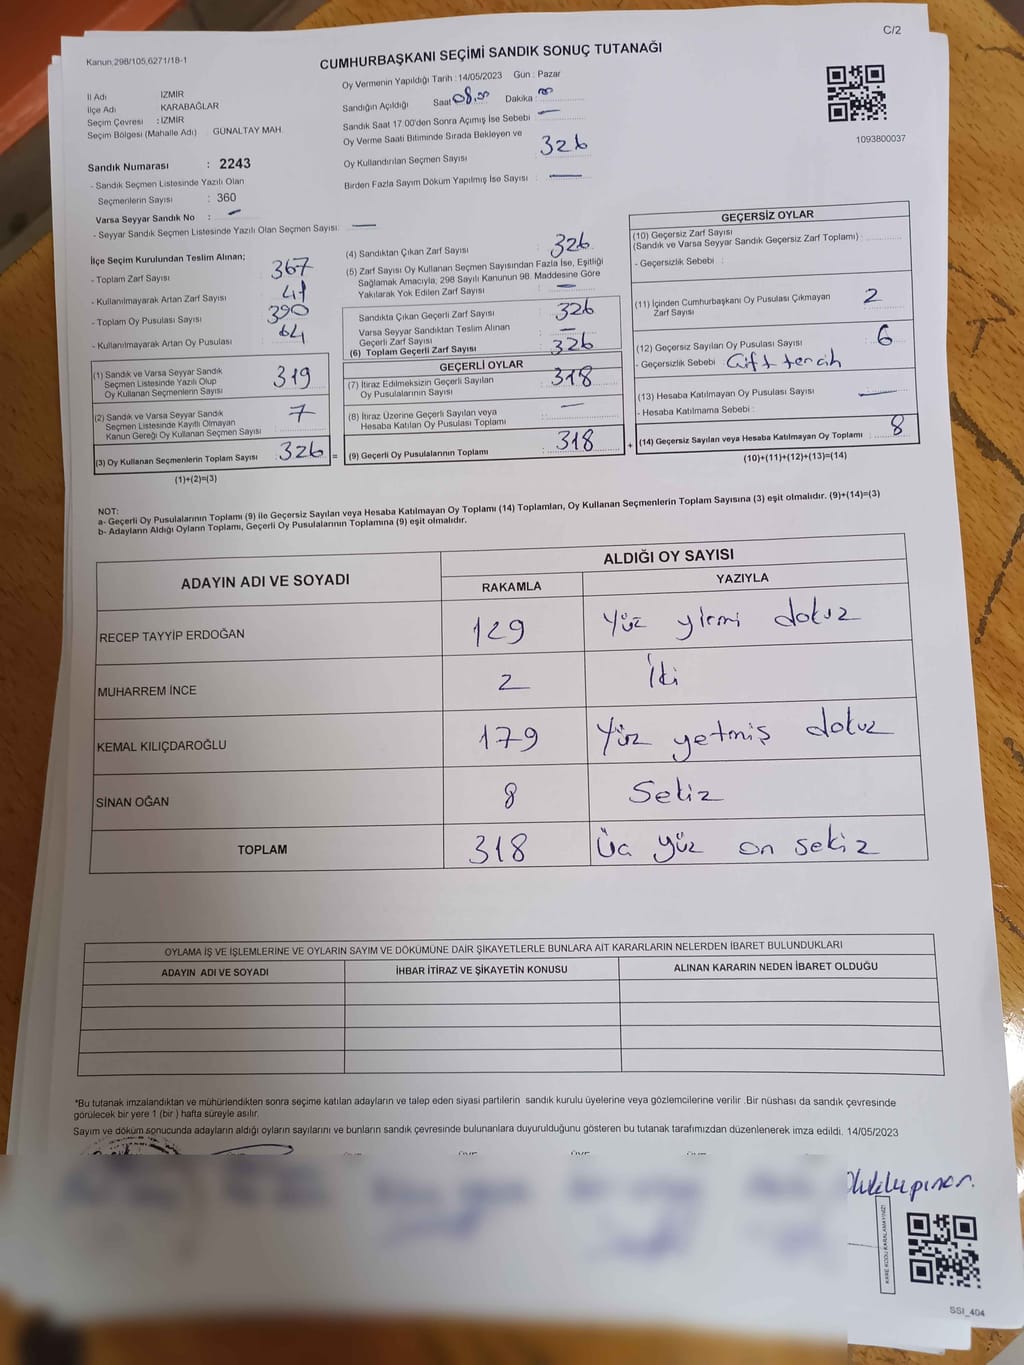 C/2
Kanun:298/105,6271/18-1
CUMHURBAŞKANI SEÇİMİ SANDIK SONUÇ TUTANAĞI
İl Adı İZMİR
İlçe Adı : KARABAĞLAR
Seçim Çevresi : İZMİR
Seçim Bölgesi (Mahalle Adı) : GÜNALTAY MAH.
Sandık Numarası : 2243
- Sandık Seçmen Listesinde Yazılı Olan
Seçmenlerin Sayısı : 360
Varsa Seyyar Sandık No : -
- Seyyar Sandık Seçmen Listesinde Yazılı Olan Seçmen Sayısı: -
Oy Vermenin Yapıldığı Tarih : 14/05/2023 Gün : Pazar
Sandığın Açıldığı Saat 08.00 Dakika : 00
Sandık Saat 17.00'den Sonra Açımış İse Sebebi : -
Oy Verme Saati Bitiminde Sırada Bekleyen ve
Oy Kullandırılan Seçmen Sayısı : 326
Birden Fazla Sayım Döküm Yapılmış İse Sayısı : -
1093800037
İlçe Seçim Kurulundan Teslim Alınan;
- Toplam Zarf Sayısı : 367
- Kullanılmayarak Artan Zarf Sayısı : 41
- Toplam Oy Pusulası Sayısı : 390
- Kullanılmayarak Artan Oy Pusulası : 64
(1) Sandık ve Varsa Seyyar Sandık
Seçmen Listesinde Yazılı Olup
Oy Kullanan Seçmenlerin Sayısı : 319
(2) Sandık ve Varsa Seyyar Sandık
Seçmen Listesinde Kayıtlı Olmayan
Kanun Gereği Oy Kullanan Seçmen Sayısı : 7
(3) Oy Kullanan Seçmenlerin Toplam Sayısı : 326 =
(1)+(2)=(3)
(4) Sandıktan Çıkan Zarf Sayısı : 326
(5) Zarf Sayısı Oy Kullanan Seçmen Sayısından Fazla İse, Eşitliği
Sağlamak Amacıyla, 298 Sayılı Kanunun 98. Maddesine Göre
Yakılarak Yok Edilen Zarf Sayısı : -
Sandıkta Çıkan Geçerli Zarf Sayısı : 326
Varsa Seyyar Sandıktan Teslim Alınan
Geçerli Zarf Sayısı : -
(6) Toplam Geçerli Zarf Sayısı : 326
GEÇERLİ OYLAR
(7) İtiraz Edilmeksizin Geçerli Sayılan
Oy Pusulasının Sayısı : 318
(8) İtiraz Üzerine Geçerli Sayılan veya
Hesaba Katılan Oy Pusulası Toplamı : -
(9) Geçerli Oy Pusulalarının Toplamı : 318 +
GEÇERSİZ OYLAR
(10) Geçersiz Zarf Sayısı
(Sandık ve Varsa Seyyar Sandık Geçersiz Zarf Toplamı) :
- Geçersizlik Sebebi :
(11) İçinden Cumhurbaşkanı Oy Pusulası Çıkmayan
Zarf Sayısı : 2
(12) Geçersiz Sayılan Oy Pusulası Sayısı : 6
- Geçersizlik Sebebi : Çift tercih
(13) Hesaba Katılmayan Oy Pusulası Sayısı : -
- Hesaba Katılmama Sebebi :
(14) Geçersiz Sayılan veya Hesaba Katılmayan Oy Toplamı : 8
(10)+(11)+(12)+(13)=(14)
NOT:
a- Geçerli Oy Pusulalarının Toplamı (9) ile Geçersiz Sayılan veya Hesaba Katılmayan Oy Toplamı (14) Toplamları, Oy Kullanan Seçmenlerin Toplam Sayısına (3) eşit olmalıdır. (9)+(14)=(3)
b- Adayların Aldığı Oyların Toplamı, Geçerli Oy Pusulalarının Toplamına (9) eşit olmalıdır.
ADAYIN ADI VE SOYADI ALDIĞI OY SAYISI
RAKAMLA YAZIYLA
RECEP TAYYİP ERDOĞAN 129 Yüz yirmi dokuz
MUHARREM İNCE 2 İki
KEMAL KILIÇDAROĞLU 179 Yüz yetmiş dokuz
SİNAN OĞAN 8 Sekiz
TOPLAM 318 Üç yüz on sekiz
OYLAMA İŞ VE İŞLEMLERİNE VE OYLARIN SAYIM VE DÖKÜMÜNE DAİR ŞİKAYETLERLE BUNLARA AİT KARARLARIN NELERDEN İBARET BULUNDUKLARI
ADAYIN ADI VE SOYADI İHBAR İTİRAZ VE ŞİKAYETİN KONUSU ALINAN KARARIN NEDEN İBARET OLDUĞU
*Bu tutanak imzalandıktan ve mühürlendikten sonra seçime katılan adayların ve talep eden siyasi partilerin sandık kurulu üyelerine veya gözlemcilerine verilir .Bir nüshası da sandık çevresinde
görülecek bir yere 1 (bir ) hafta süreyle asılır.
Sayım ve döküm sonucunda adayların aldığı oyların sayılarını ve bunların sandık çevresinde bulunanlara duyurulduğunu gösteren bu tutanak tarafımızdan düzenlenerek imza edildi. 14/05/2023
KARE KODU KARALAMAYINIZ!
SSI_404